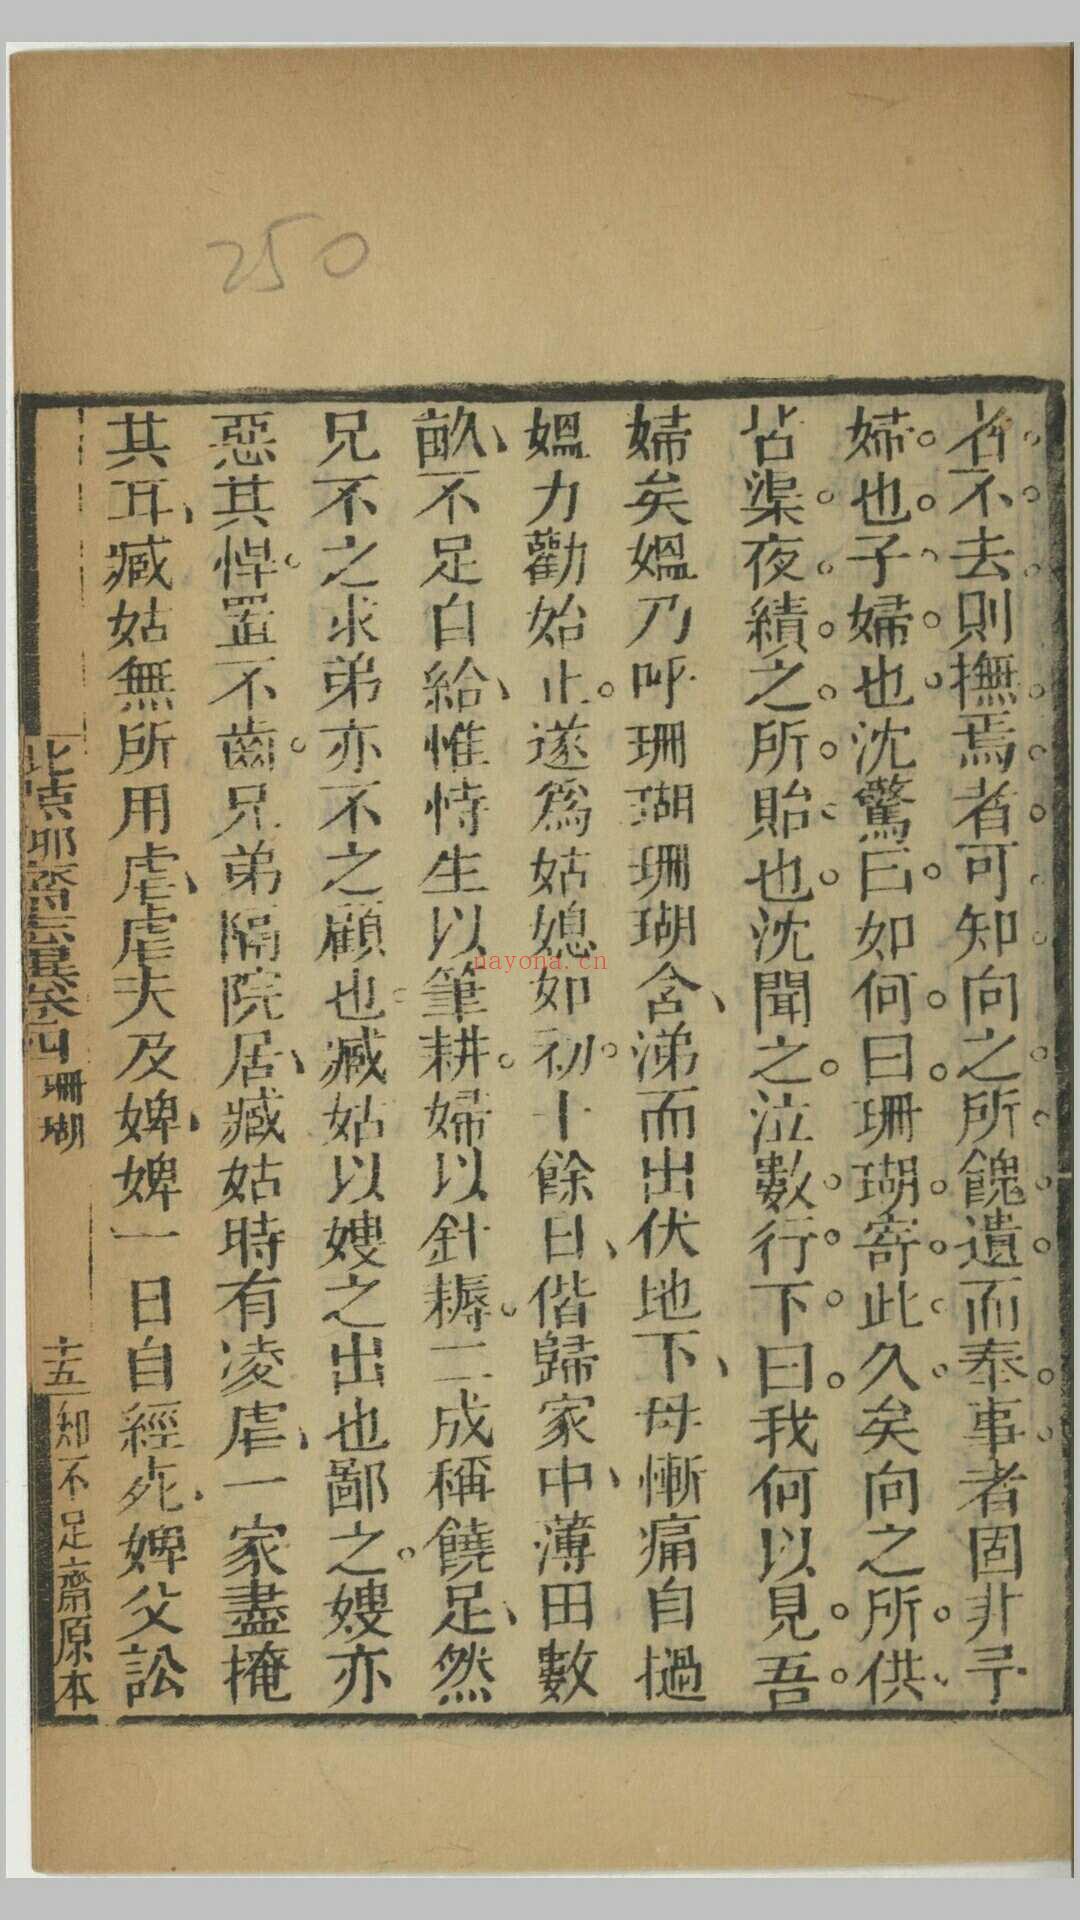 者不去則撫焉者可知向之所餽遺而奉事者固非予
婦也子婦也沈驚曰如何曰珊瑚寄此久矣向之所供
皆渠夜績之所貽也沈聞之泣數行下曰我何以見吾
婦矣媼乃呼珊瑚珊瑚含涕而出伏地下母慚痛自撾
媼力勸始止遂爲姑媳如初十餘日偕歸家中薄田數
畝不足自給惟恃生以筆耕婦以針耨二成稱饒足然
兄不之求弟亦不之顧也臧姑以嫂之出也鄙之嫂亦
惡其悍置不齒兄弟隔院居臧姑時有凌虐一家盡掩
其耳臧姑無所用虐虐夫及婢婢一日自經死婢父訟
聊齋志異卷四 珊瑚 十五 知不足齋原本
250
nayona.cn